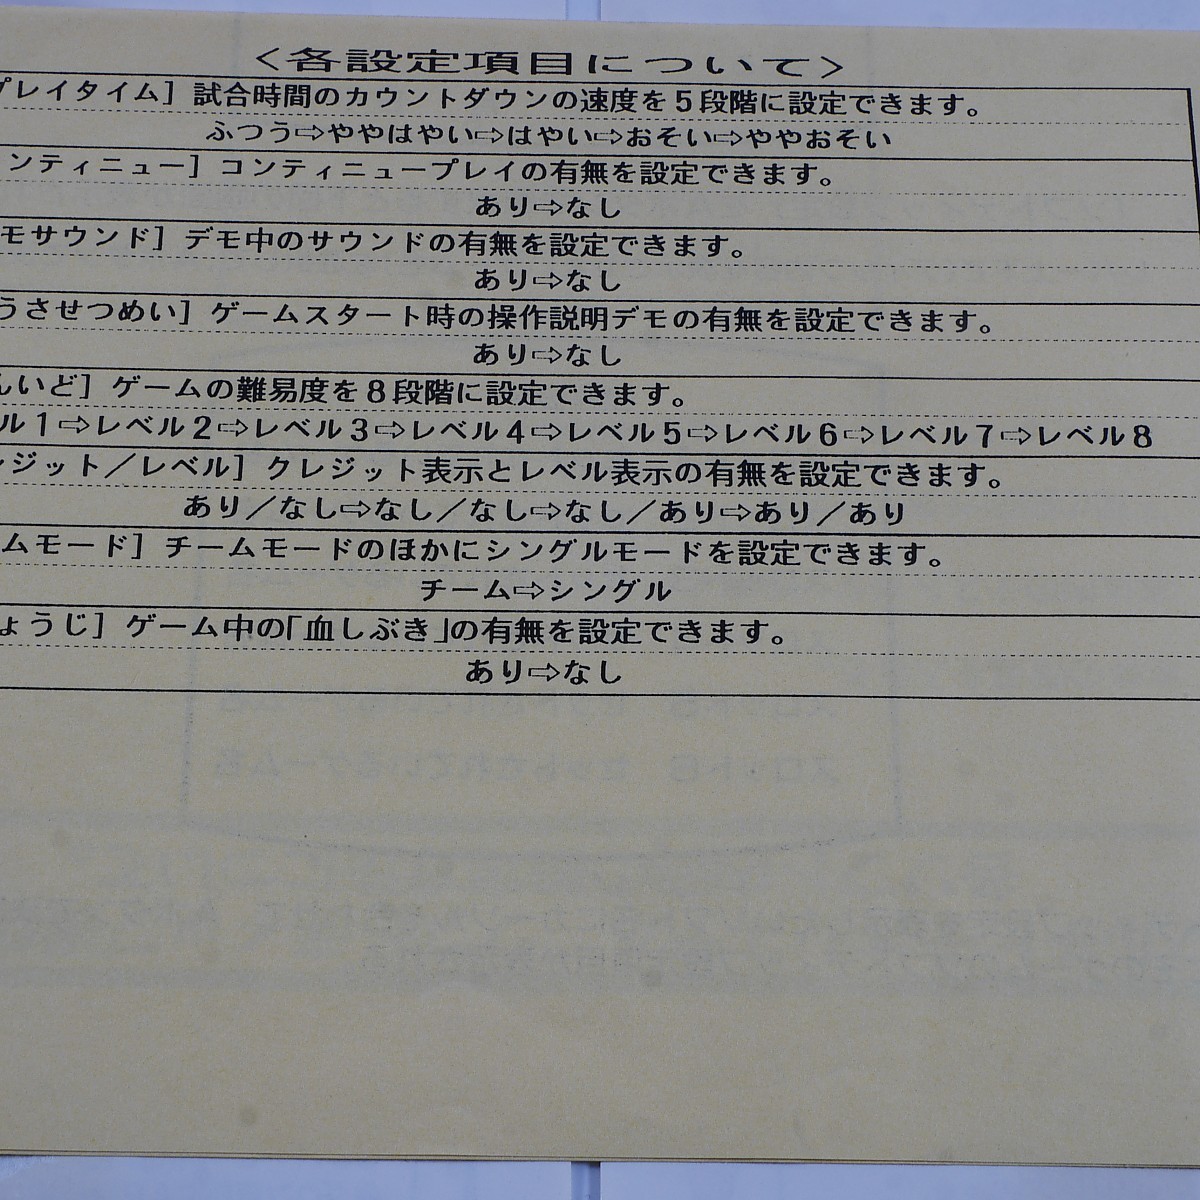 <各設定項目について>
プレイタイム］試合時間のカウントダウンの速度を５段階に設定できます。
ふつう⇨ややはやい⇨はやい⇨おそい⇨ややおそい
ンティニュー］コンティニュープレイの有無を設定できます。
あり⇨なし
モサウンド］デモ中のサウンドの有無を設定できます。
あり⇨なし
うさせつめい］ゲームスタート時の操作説明デモの有無を設定できます。
あり⇨なし
んいど］ゲームの難易度を８段階に設定できます。
ル１⇨レベル２⇨レベル３⇨レベル４⇨レベル５⇨レベル６⇨レベル７⇨レベル８
レジット／レベル］クレジット表示とレベル表示の有無を設定できます。
あり／なし⇨なし／なし⇨なし／あり⇨あり／あり
ムモード］チームモードのほかにシングルモードを設定できます。
チーム⇨シングル
ょうじ］ゲーム中の「血しぶき」の有無を設定できます。
あり⇨なし